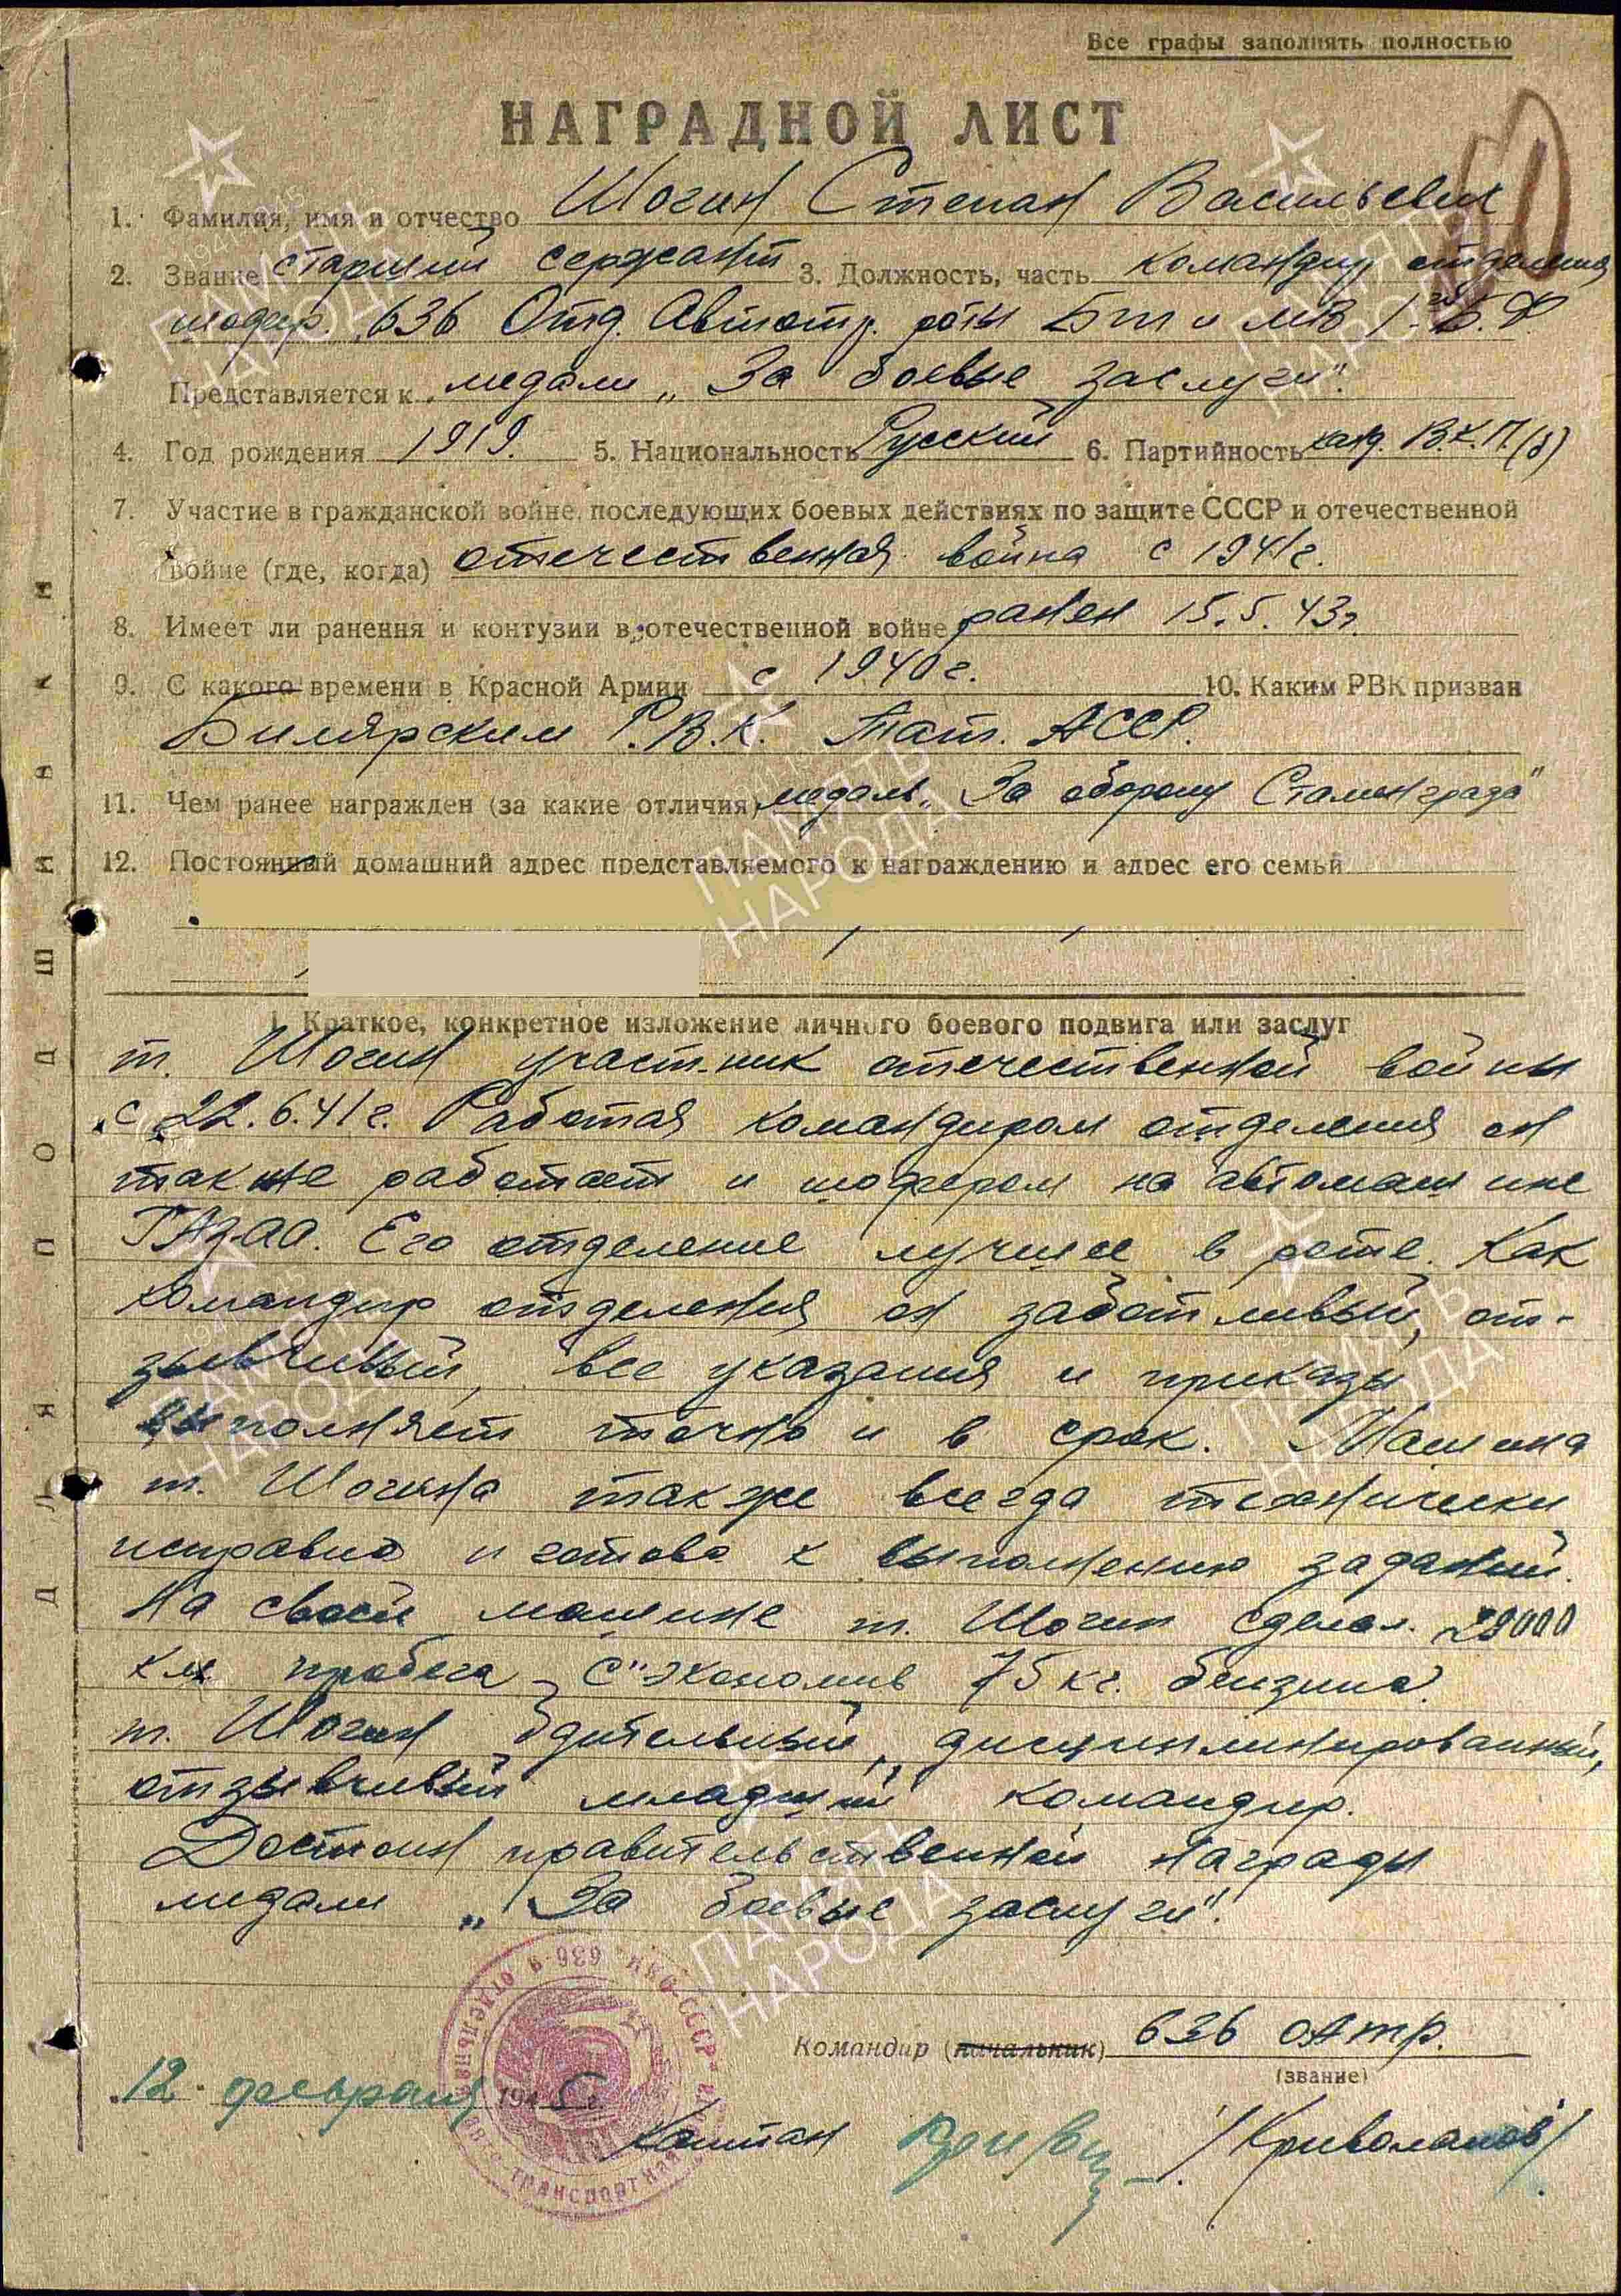 Все графы заполнять полностью
НАГРАДНОЙ ЛИСТ
1. Фамилия, имя и отчество Шогин Степан Васильевич
2. Звание старший сержант 3. Должность, часть командир отделения
шофер. 636 Отд. Автотр. роты БТ и МВ 1го Б.Ф.
Представляется к медали „За боевые заслуги".
4. Год рождения 1919. 5. Национальность Русский 6. Партийность канд. В.К.П.(б)
7. Участие в гражданской войне, последующих боевых действиях по защите СССР и отечественной
войне (где, когда) отечественная война с 1941г.
8. Имеет ли ранения и контузии в отечественной войне ранен 15.5.43г.
9. С какого времени в Красной Армии с 1940г. 10. Каким РВК призван
Билярским Р.В.К. Тат. АССР.
11. Чем ранее награжден (за какие отличия) медаль „За оборону Сталинграда"
12. Постоянный домашний адрес представляемого к награждению и адрес его семьи
I. Краткое, конкретное изложение личного боевого подвига или заслуг
т. Шогин участник отечественной войны
с 22.6.41г. Работая командиром отделения он
также работает и шофером на автомашине
ГАЗ-АА. Его отделение лучшее в роте. Как
командир отделения он заботливый, от-
зывчивый, все указания и приказы
выполняет точно и в срок. Машина
т. Шогина также всегда технически
исправна и готова к выполнению заданий.
На своей машине т. Шогин сделал 29000
км пробега С"экономив 75 кг. бензина.
т. Шогин бдительный, дисциплинированный,
отзывчивый младший командир.
Достоин правительственной награды
медали „За боевые заслуги".
Командир (начальник) 636 оАтр.
(звание)
12 февраля 1945 г.
Капитан /Криволапов/
НКО-СССР 636-я отдельная автотранспортная
ДЛЯ ПОДШИВКИ
ПАМЯТЬ НАРОДА
1941-1945